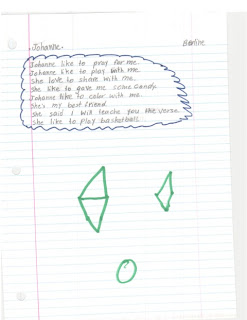 Johanne.
Berline
Johanne like to pray for me.
Johanne like to play with me.
She love to share with me.
She like to gave me some candy.
Johanne like to color with me.
She's my best friend
She said I will teache you the verse.
She like to play basketball.